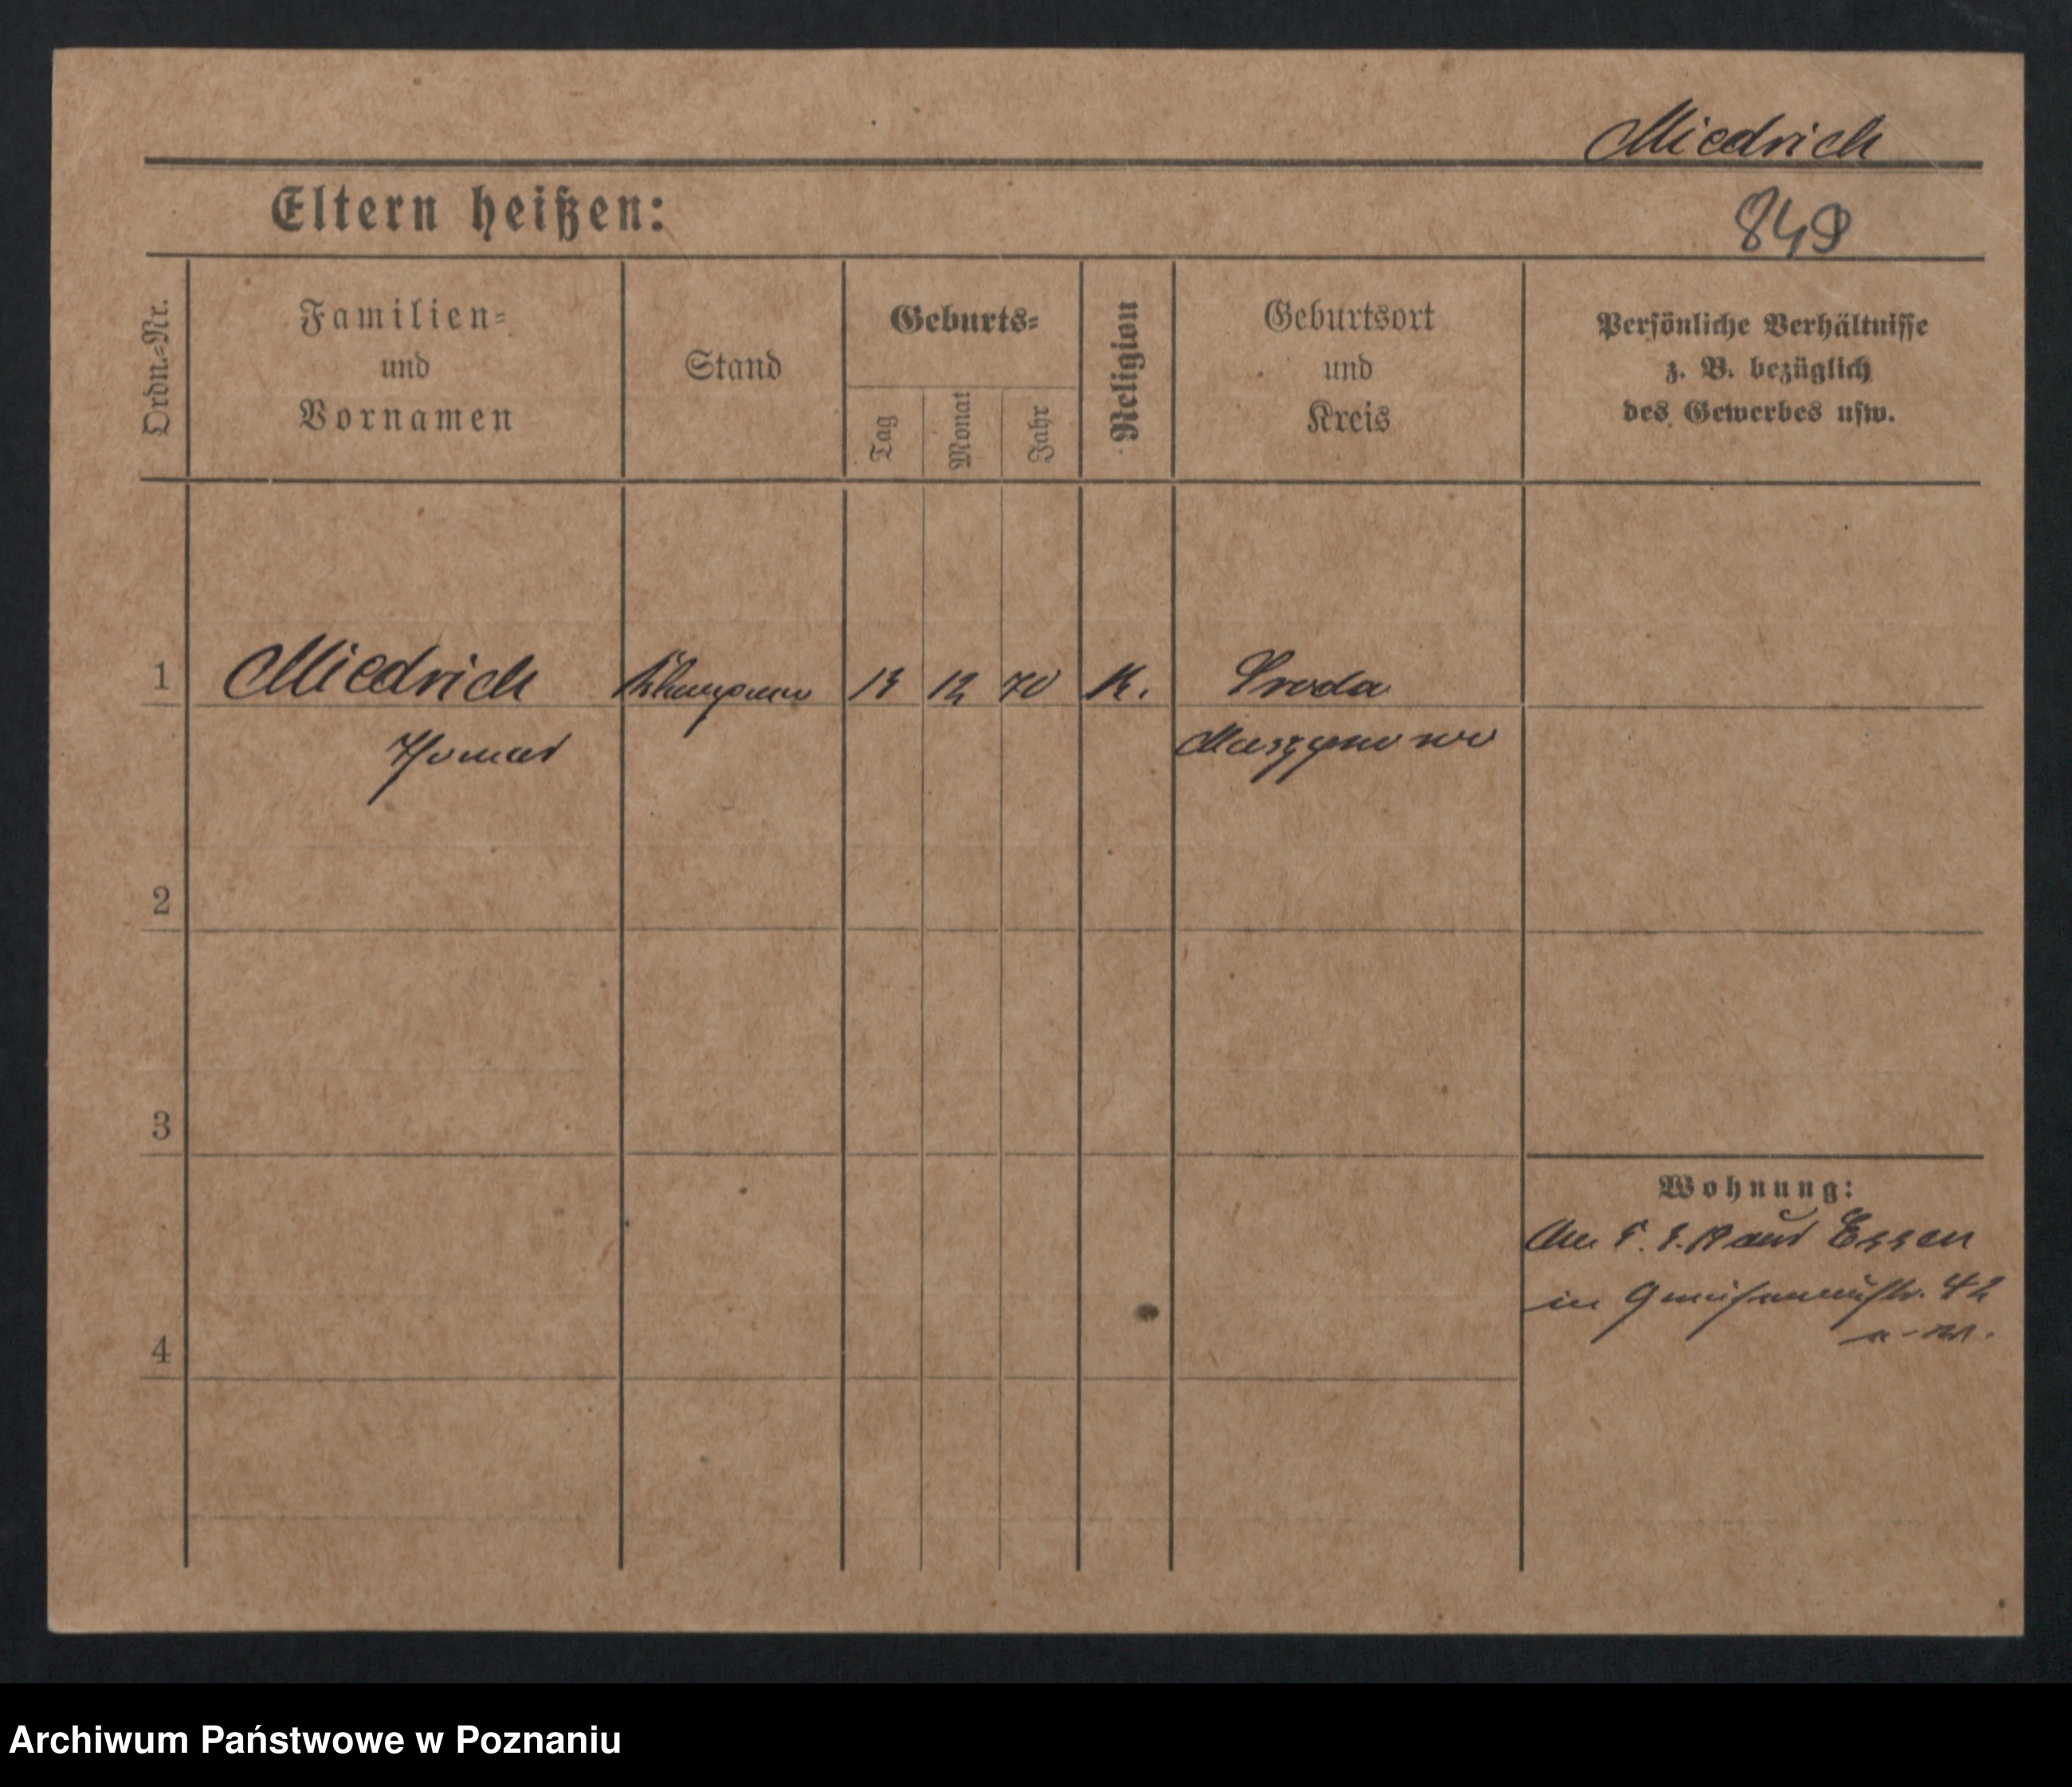 Miedrich
849
Eltern heißen:
Ordn.-Nr.
Familien-
und
Vornamen
Stand
Geburts-
Tag
Monat
Jahr
Religion
Geburtsort
und
Kreis
Persönliche Verhältnisse
z. B. bezüglich
des Gewerbes usw.
1 Miedrich 12 70 K. Sroda
2
3
Wohnung:
aus Essen
in Gneisenaustr. 42
4
Archiwum Państwowe w Poznaniu